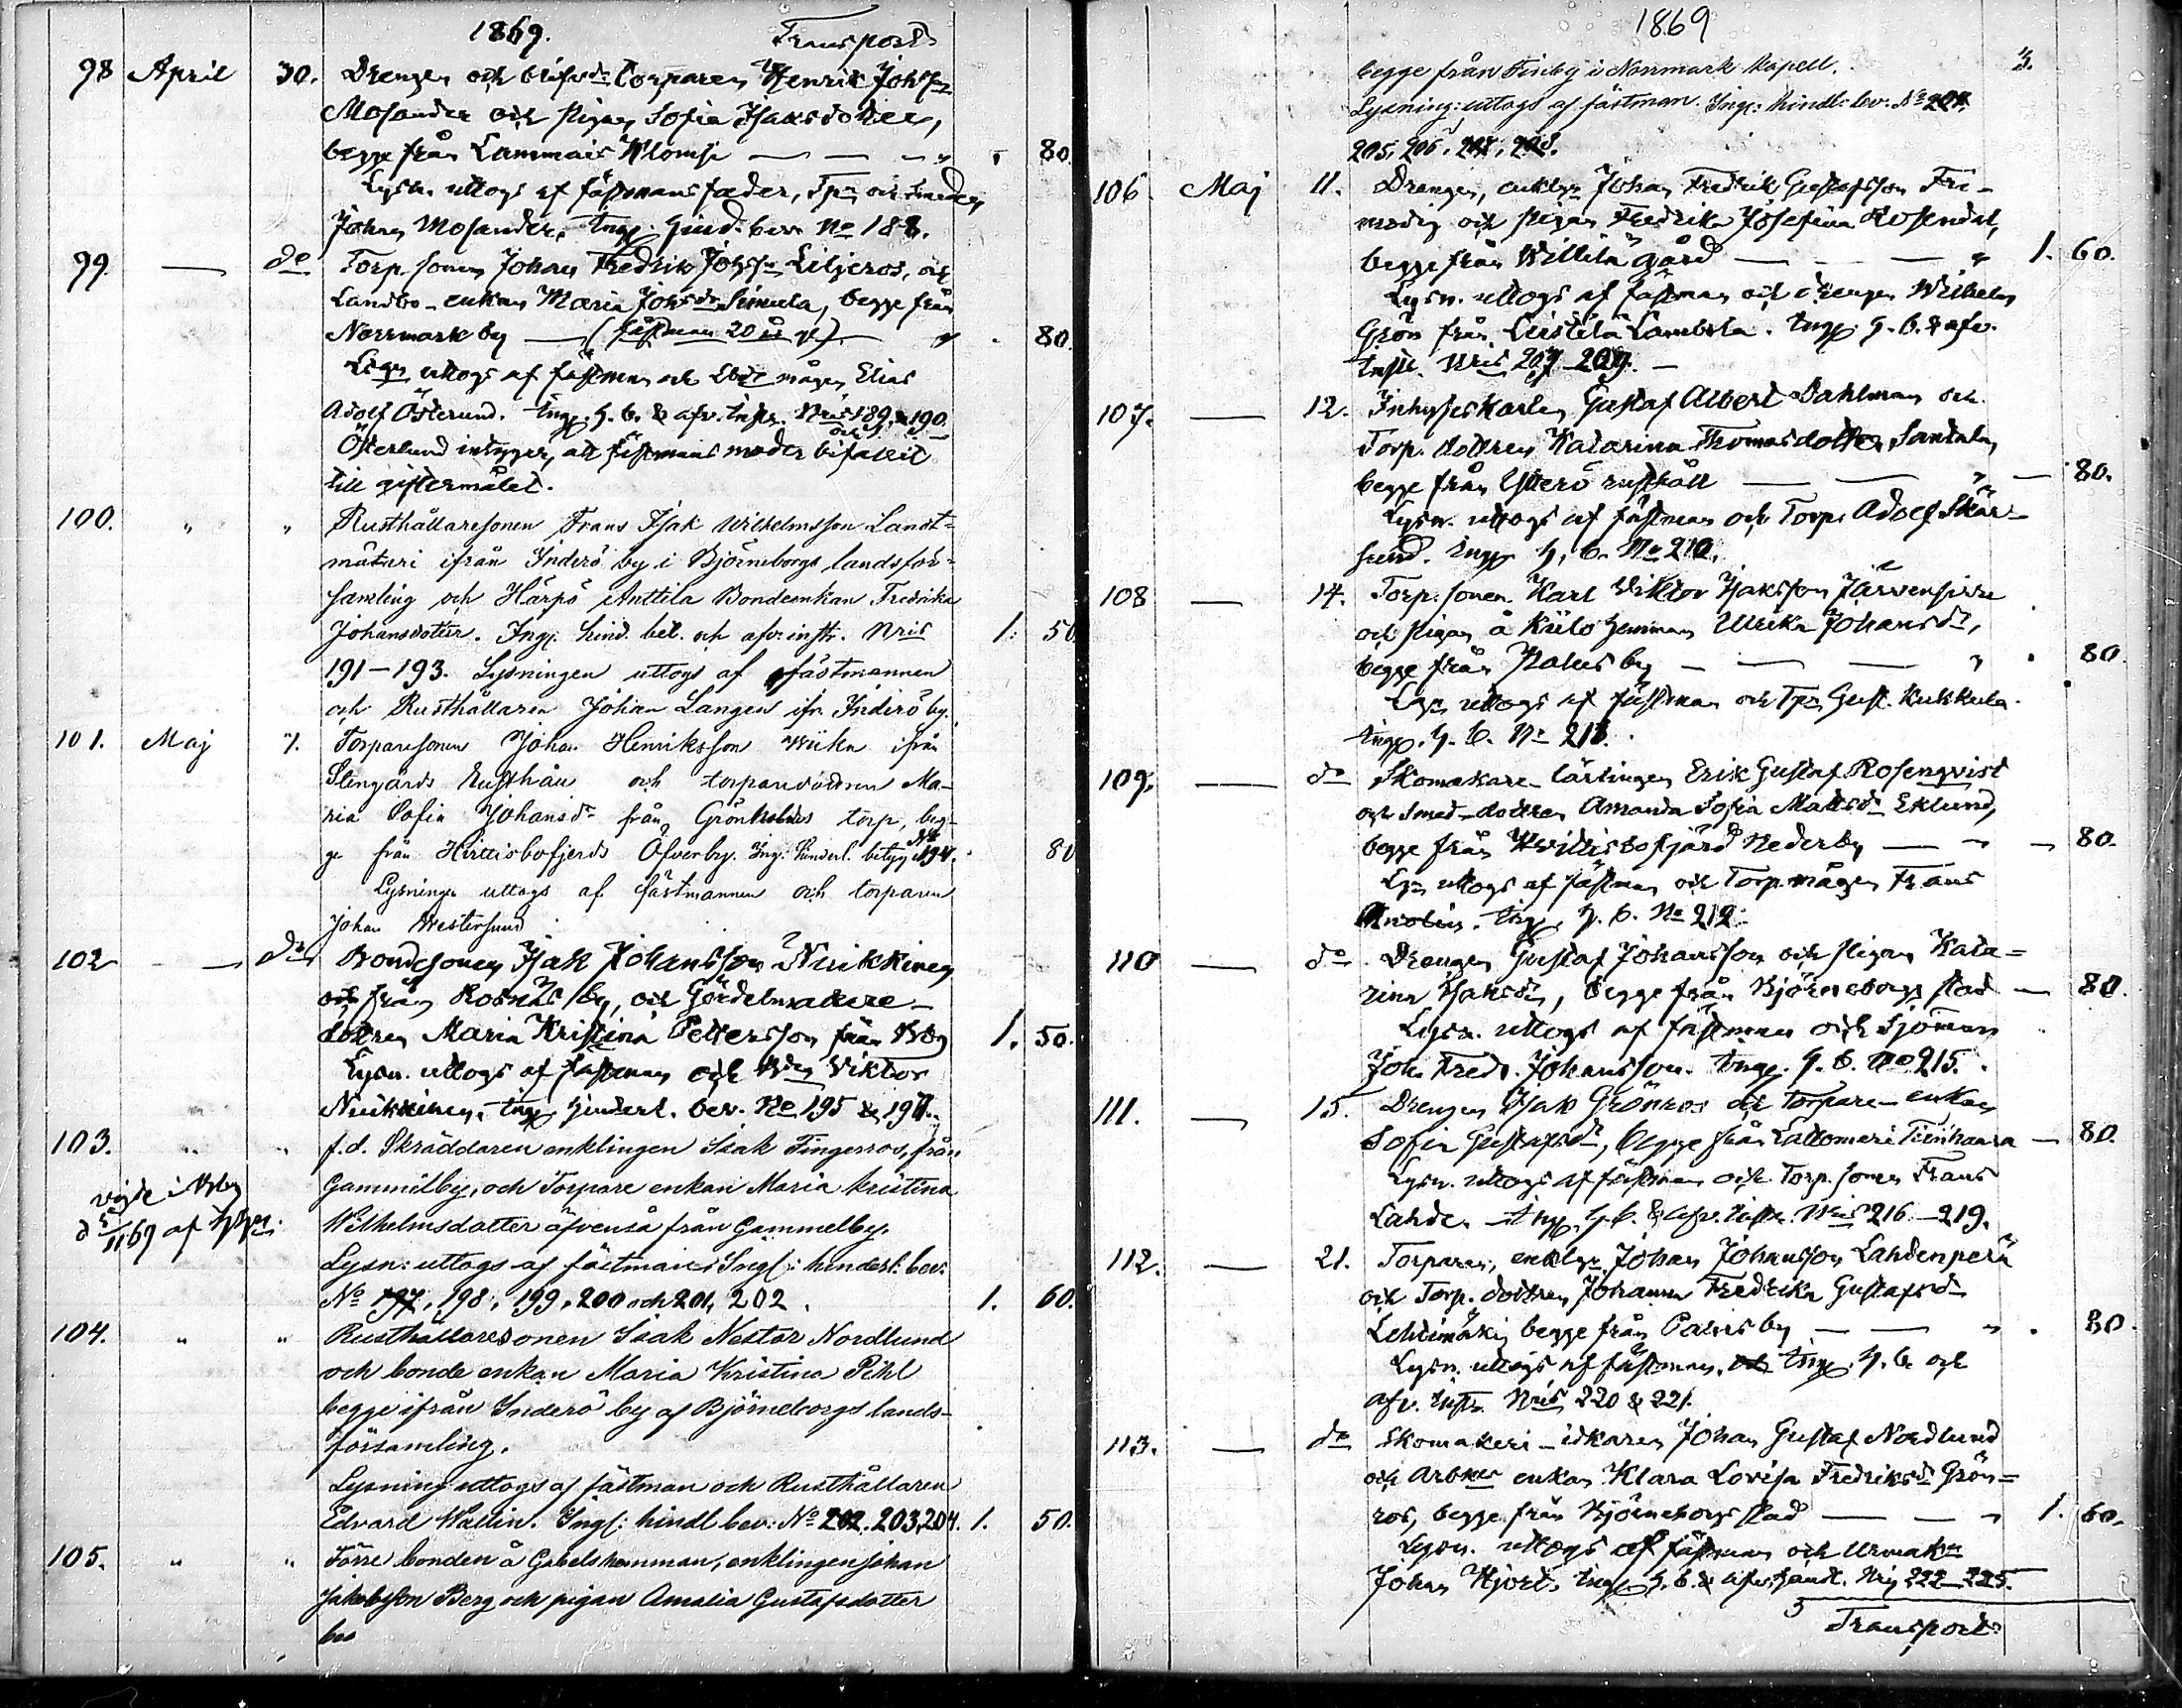 1869. Transport
98 April 30. Drengen och blifvde Torparen Henrik Johsson
Mosander och pigan Sofia Isaksdotter,
begge från Lammais Klomsi — — " . 80.
Lysn. uttogs af fästmans fader, Tpn och Smeden
Johan Mosander. Ingg. hind. bev. No 188.
99. — do Torp. sonen Johan Fredrik Johsson Liljeros, och
Landbo-enkan Maria Johsdr Simula, begge från
Norrmark by — (fästman 20 år g.) — " . 80.
Lysn uttogs af fästman och Lbde mågen Elias
Adolf Österlund. Ingg. h. b. & afv. instr. Nris 189 & 190.
Österlund intygger, att fästmans moder bifallit
till giftermålet.
100. " " Rusthållaresonen Frans Isak Wilhelmsson Landt=
mäteri ifrån Inderö by i Björneborgs landsför=
samling och Härpö Anttila Bondeenkan Fredrika
Johansdotter. Ingg. hind. bet. och afv. instr. Nris 1. 50
191-193. Lysningen uttogs af fästmannen
och Rusthållaren Johan Langen ifr. Inderö by.
101. Maj 7. Torparesonen Johan Henriksson Wiika ifrån
Stengårds Rusthåll och torparedottren Ma-
ria Sofia Johansdr från Grönholms torp, beg-
ge från Hvittisbofjerds Öfverby. Ing. hinderl. betyg No 194. 80
Lysningen uttogs af fästmannen och torparen
Johan Westersund
102 — do Bondesonen Isak Johansson Niukkinen
från Rosnäs by, och Gördelmakare-
dottren Maria Kristina Pettersson från Bbg 1. 50.
Lysn. uttogs af fästman och Bden Viktor
Niukkinen. Ingg hinderl. bev. No 195 & 197.
103. " " f.d. Skräddaren enklingen Isak Fingerroos, från
Gammelby, och Torpare enkan Maria Kristina
vigde i Bby
d 5/11 69 af
Wilhelmsdotter äfvenså från Gammelby.
Lysn: uttogs af fästman. Ingf: hinderl: bev:
No 197, 198, 199, 200 och 201, 202. 1. 60.
104. " " Rusthållaresonen Isak Nestor Nordlund
och bonde enkan Maria Kristina Pihl
begge ifrån Inderö by af Björneborgs lands-
församling.
Lysning uttogs af fästman och Rusthållaren
Edvard Wallin. Ingf: hindl bev: No 202. 203, 204. 1. 50.
105. " " Förre bonden å Gabels hemman, enklingen Johan
Jakobsson Berg och pigan Amalia Gustafsdotter
1869
begge från Finby i Norrmark Kapell. 3.
Lysning: uttogs af fästman. Ingf: hindl: bev: No 204.
205, 206, 207, 208.
106 Maj 11. Drengen, enklgn Johan Fredrik Gustafsson Fri-
modig och pigan Fredrika Josefina Rosendal,
begge från Willilä gård — — " 1. 60.
Lysn. uttogs af fästman och drengen Wilhelm
Grön från Leistelä Lambsta. Ingg. h. b. & afv.
instr. Nris 207-209. —
107. — 12. Inhyseskarlen Gustaf Albert Dahlman och
Torp. dottren Katarina Thomasdotter Santala,
begge från Ytterö rusthåll — — " — 80.
Lysn. uttogs af fästman och Torp. Adolf Skär-
lund. Ingg h. b. No 210.
108 — 14. Torp. sonen Karl Viktor Isaksson Järvensivu
och pigan å Kiilo hemman Ulrika Johansdr,
begge från Hakus by — — — " . 80.
Lysn uttogs af fästman och Tpn Gust. Kukkula.
Ingg. h. b. No 218.
109. — do Skomakare-lärlingen Erik Gustaf Rosenqvist
och Smed-dottren Amanda Sofia Mattsdr Eklund,
begge från Hvittisbofjärd Nederby — " — 80.
Lysn uttogs af fästman och Torp. mågen Frans
Ing. h. b. No 212.
110 — do Drengen Gustaf Johansson och pigan Kata=
rina Isaksdr, begge från Björneborgs stad — 80.
Lysn. uttogs af fästman och Sjöman
Joh. Fredr. Johansson. Ingg. h. b. No 215.
111. — 15. Drengen Isak Grönroos och torpare-enkan
Sofia Gustafsdr, begge från Lattomeri Tienhaara — 80.
Lysn. uttogs af fästman och Torp. sonen Frans
Lahde. Ingg. h. b. & afv. instr. Nris 216-219.
112. — 21. Torparen, enklgn Johan Johansson Lahdenperä
och Torp. dottren Johanna Fredrika Gustafsdr
Lehtimäki begge från Påmis by — — " . 80.
Lysn. uttogs af fästman. Ingg. h. b. och
afv. instr. Nris 220 & 221.
113. — do Skomakeri-idkaren Johan Gustaf Nordlund
och Arbkar enkan Klara Lovisa Fredriksdr Grön=
ros, begge från Björneborgs stad — — " 1. 60.
Lysn. uttogs af fästman och Urmakrn
Johan Hjort. Ingg h. b. & afv. handl. Nris 222-225.
Transport